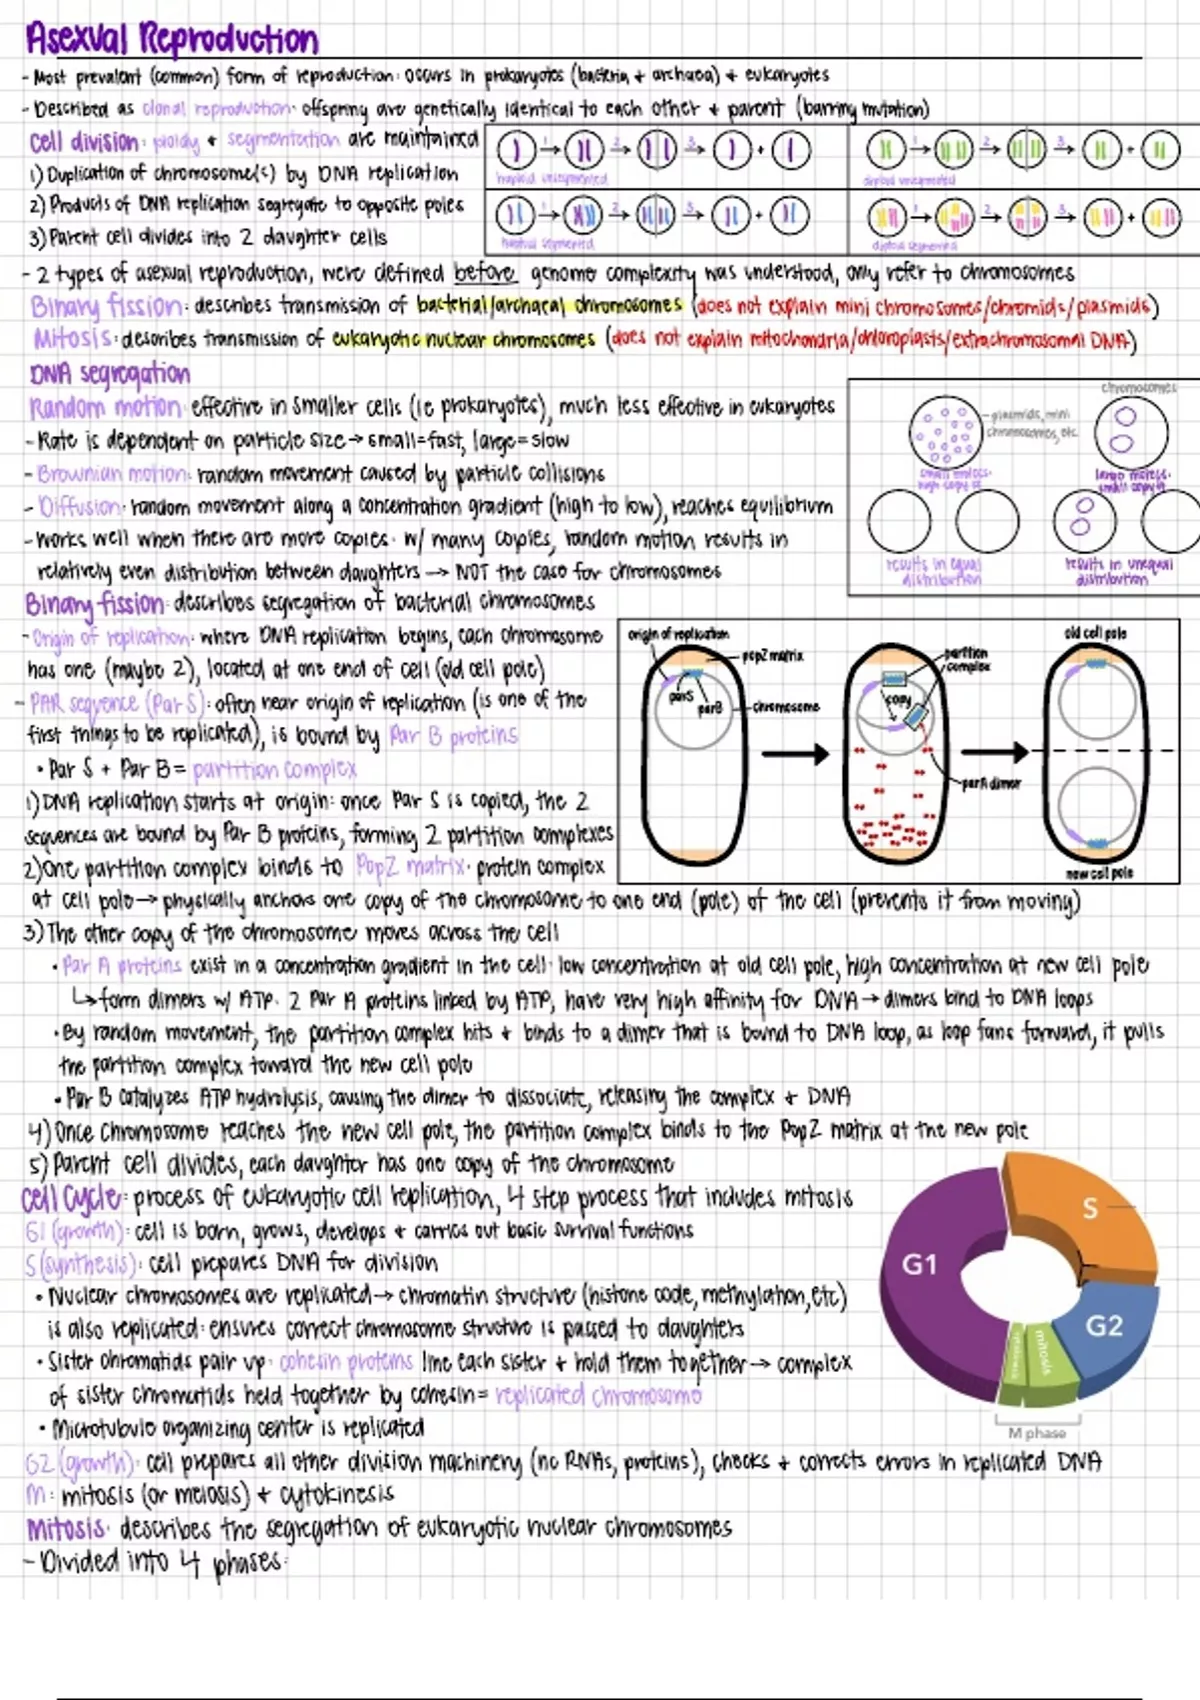 Asexual Reproduction
- Most prevalent (common) form of reproduction: occurs in prokaryotes (bacteria + archaea) + eukaryotes
- Described as clonal reproduction: offspring are genetically identical to each other + parent (barring mutation)
Cell division: ploidy + segmentation are maintained
1) Duplication of chromosome(s) by DNA replication
2) Products of DNA replication segregate to opposite poles
3) Parent cell divides into 2 daughter cells
1 2 3 +
haploid unsegmented
1 2 3 +
diploid unsegmented
1 2 3 +
haploid segmented
1 2 3 +
diploid segmented
- 2 types of asexual reproduction, were defined before genome complexity was understood, only refer to chromosomes
Binary fission: describes transmission of bacterial/archaeal chromosomes (does not explain mini chromosomes/chromids/plasmids)
Mitosis: describes transmission of eukaryotic nuclear chromosomes (does not explain mitochondria/chloroplasts/extrachromosomal DNA)
DNA segregation
Random motion: effective in smaller cells (ie prokaryotes), much less effective in eukaryotes
- Rate is dependent on particle size → small=fast, large=slow
- Brownian motion: random movement caused by particle collisions
- Diffusion: random movement along a concentration gradient (high to low), reaches equilibrium
- Works well when there are more copies: w/ many copies, random motion results in
relatively even distribution between daughters → NOT the case for chromosomes
chromosomes
plasmids, mini
chromosomes, etc.
small molecs.
high copy #
large molecs.
small copy #
results in equal
distribution
results in unequal
distribution
Binary fission: describes segregation of bacterial chromosomes
- Origin of replication: where DNA replication begins, each chromosome
has one (maybe 2), located at one end of cell (old cell pole)
- PAR sequence (Par S): often near origin of replication (is one of the
first things to be replicated), is bound by Par B proteins
• Par S + Par B = partition complex
1) DNA replication starts at origin: once Par S is copied, the 2
sequences are bound by Par B proteins, forming 2 partition complexes
2) One partition complex binds to PopZ matrix: protein complex
at cell pole → physically anchors one copy of the chromosome to one end (pole) of the cell (prevents it from moving)
origin of replication
popZ matrix
parS
parB
chromosome
partition
complex
copy
parA dimer
old cell pole
new cell pole
3) The other copy of the chromosome moves across the cell
• Par A proteins exist in a concentration gradient in the cell: low concentration at old cell pole, high concentration at new cell pole
↳ form dimers w/ ATP: 2 Par A proteins linked by ATP, have very high affinity for DNA → dimers bind to DNA loops
• By random movement, the partition complex hits + binds to a dimer that is bound to DNA loop, as loop fans forward, it pulls
the partition complex toward the new cell pole
• Par B catalyzes ATP hydrolysis, causing the dimer to dissociate, releasing the complex + DNA
4) Once chromosome reaches the new cell pole, the partition complex binds to the PopZ matrix at the new pole
5) Parent cell divides, each daughter has one copy of the chromosome
Cell Cycle: process of eukaryotic cell replication, 4 step process that includes mitosis
G1 (growth): cell is born, grows, develops + carries out basic survival functions
S (synthesis): cell prepares DNA for division
• Nuclear chromosomes are replicated → chromatin structure (histone code, methylation, etc)
is also replicated: ensures correct chromosome structure is passed to daughters
• Sister chromatids pair up: cohesin proteins line each sister + hold them together → complex
of sister chromatids held together by cohesin = replicated chromosome
• Microtubule organizing center is replicated
G1
S
G2
mitosis
M phase
G2 (growth): cell prepares all other division machinery (nc RNAs, proteins), checks + corrects errors in replicated DNA
M: mitosis (or meiosis) + cytokinesis
Mitosis: describes the segregation of eukaryotic nuclear chromosomes
- Divided into 4 phases: